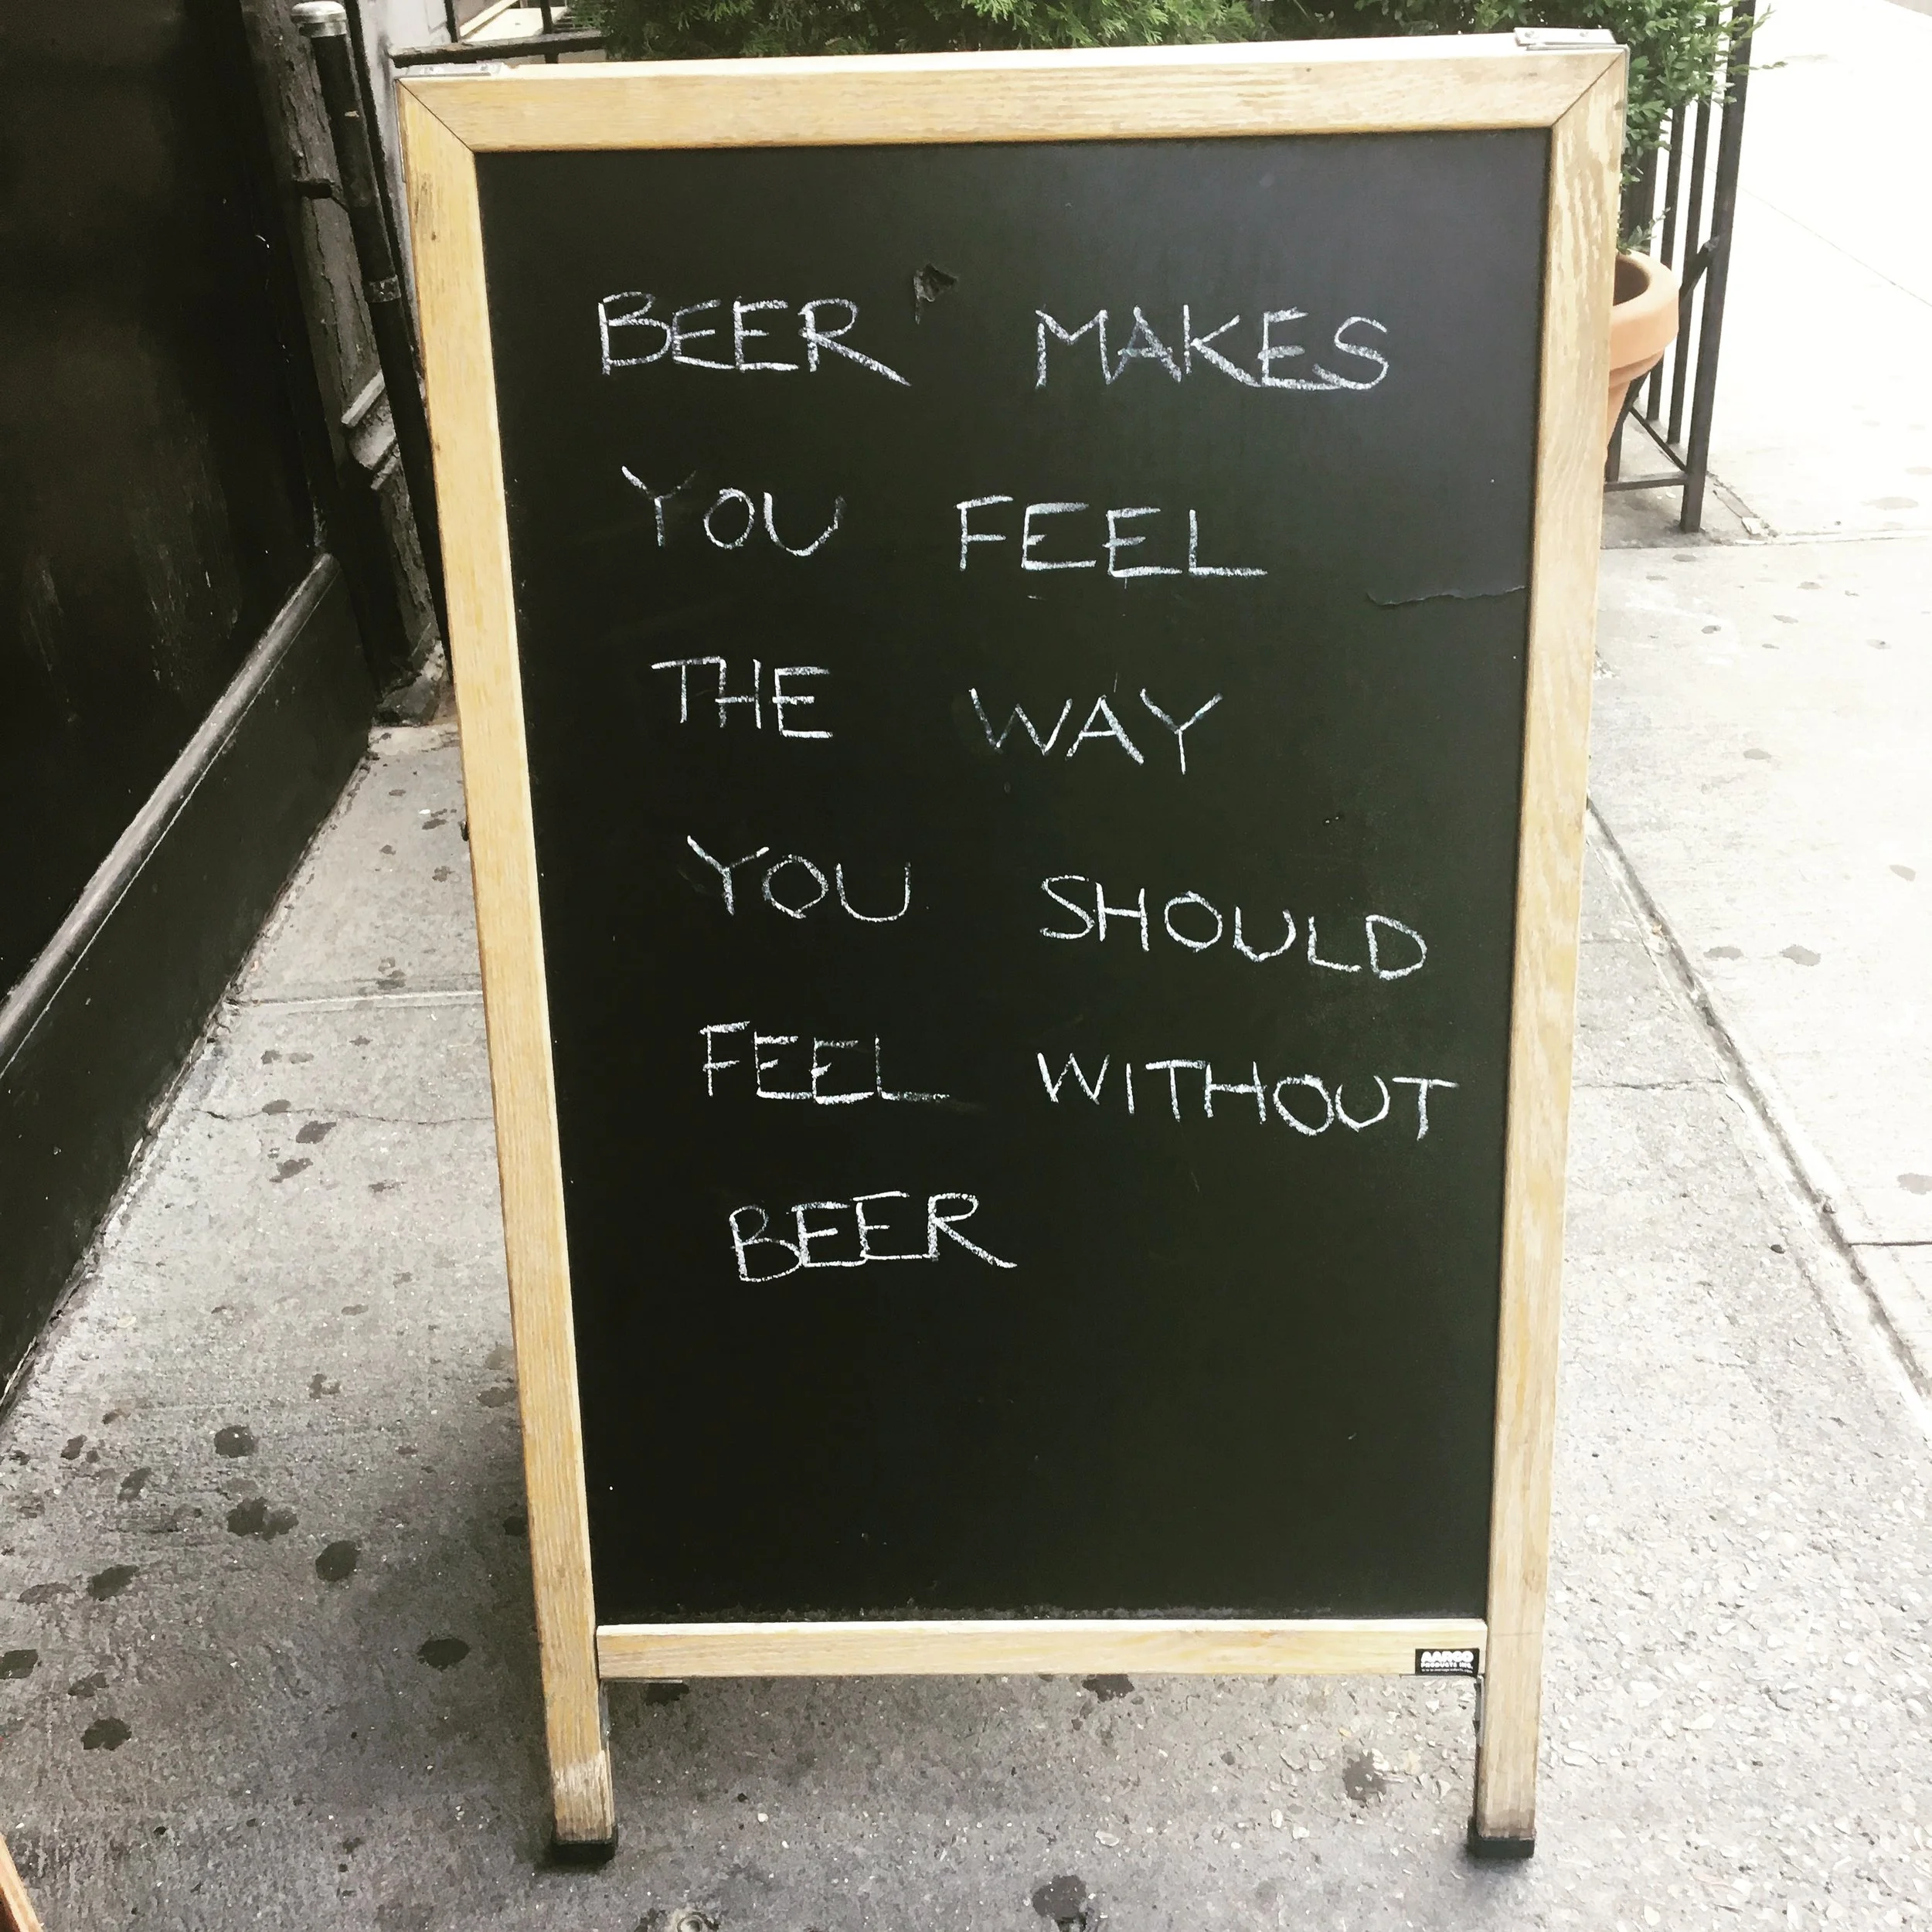 BEER MAKES
YOU FEEL
THE WAY
YOU SHOULD
FEEL WITHOUT
BEER
AARCO
PRODUCTS INC.